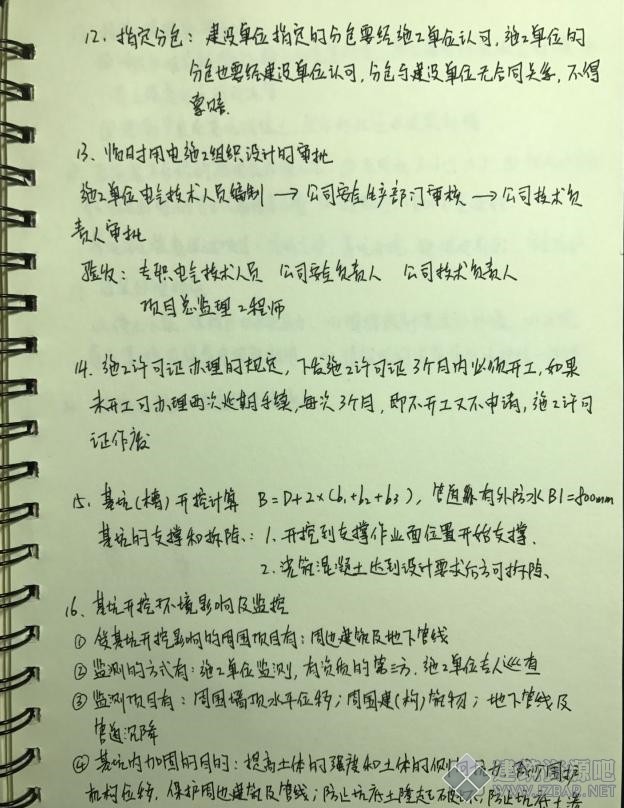 12、指定分包：建设单位指定的分包要经施工单位认可，施工单位的
分包也要经建设单位认可，分包与建设单位无合同关系，不得
索赔.
13、临时用电施工组织设计的审批
施工单位电气技术人员编制 → 公司安全生产部门审核 → 公司技术负
责人审批
验收：专职电气技术人员 公司安全负责人 公司技术负责人
项目总监理工程师
14、施工许可证办理的规定，下发施工许可证3个月内必须开工，如果
未开工可办理两次延期手续，每次3个月，即不开工又不申请，施工许可
证作废
15、基坑(槽)开挖计算 B=D+2×(b1+b2+b3)，管道有外防水B1=800mm
基坑的支撑和拆除：1.开挖到支撑作业面位置开始支撑.
2.浇筑混凝土达到设计要求后方可拆除、
16、基坑开挖环境影响及监控
① 受基坑开挖影响的周围项目有：周边建筑及地下管线
② 监测的方式有：施工单位监测，有资质的第三方，施工单位专人巡查
③ 监测项目有：周围墙顶水平位移；周围建(构)筑物；地下管线及
管道沉降
④ 基坑内加固的目的：提高土体的强度和土体的侧向抗力，减少围护
机构位移，保护周边建筑及管线；防止坑底土隆起破坏；防止坑底土
建筑资源吧
WWW.JZBAO.NET